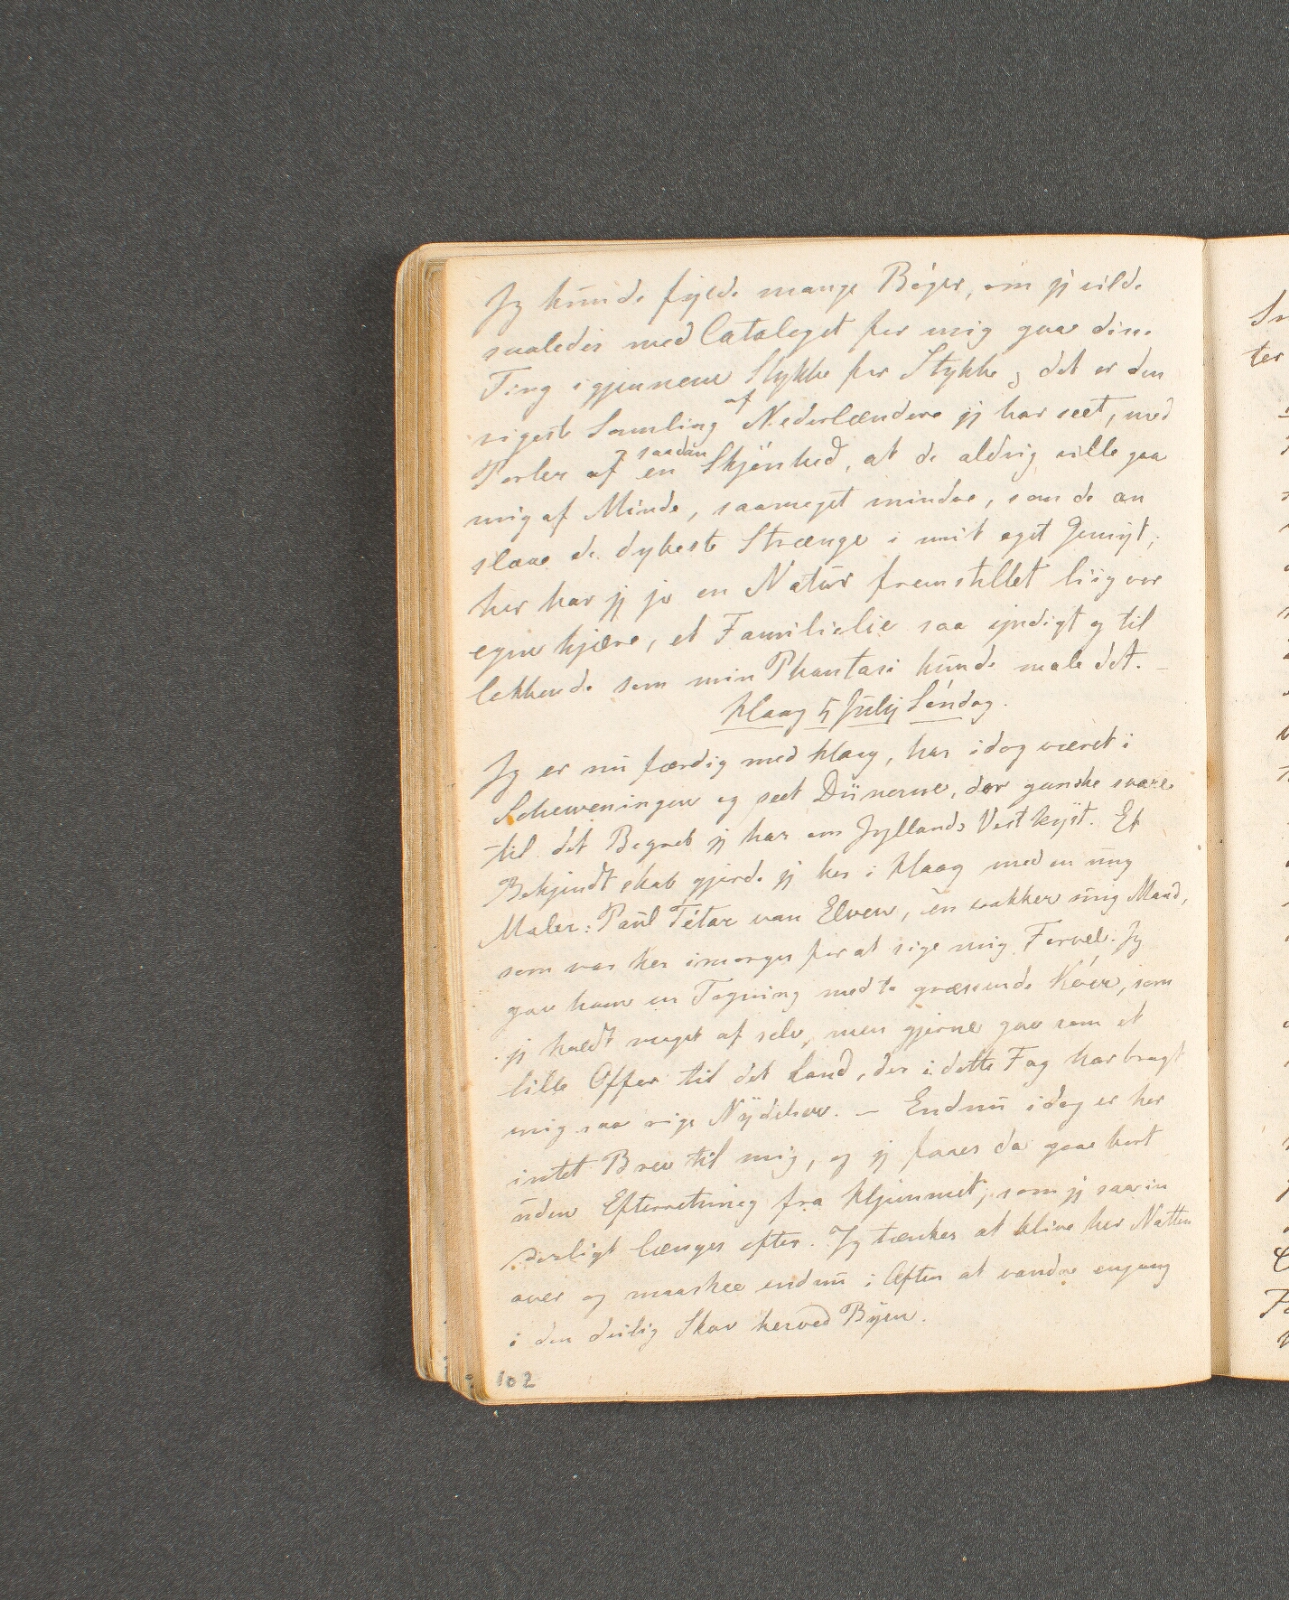 Jeg kunde fylde mange Bøger, om jeg vilde
saaledes med Cataloget for mig gaae disse
Ting igjennem Stykke for Stykke; det er den
rigeste Samling af Nederlændere jeg har seet, med
Perler af en saadan Skjønhed, at de aldrig ville gaae
mig af Minde, saameget mindre, som de an
slaae de dybeste Strænge i mit eget Gemyt;
her har jeg jo en Natur fremstillet liig vor
egen kjære, et Familielie saa yndigt og til
lokkende som min Phantasi kunde male det. –
Haag 5 July Søndag.
Jeg er nu færdig med Haag, har idag været i
Scheweningen og seet Dünerne, der ganske svare
til det Begreb jeg har om Jyllands Vestkyst. Et
Bekjendtskab gjorde jeg her i Haag med en ung
Maler: Paul Tétar van Elven, en vakker ung Mand,
som var her imorges for at sige mig Farvel. Jeg
gav ham en Tegning med to græssende Køer, som
jeg holdt meget af selv, men gjerne gav som et
lille Offer til det Land, der i dette Fag har bragt
mig saa rige Nydelser. – Endnu idag er her
intet Brev til mig, og jeg faaer da gaae bort
uden Efterretning fra Hjemmet, som jeg saa in
derligt længes efter. Jeg tænker at blive her Natten
over og maaskee endnu i Aften at vandre engang
i den deilig Skov herved Byen.
102
Sn
ter